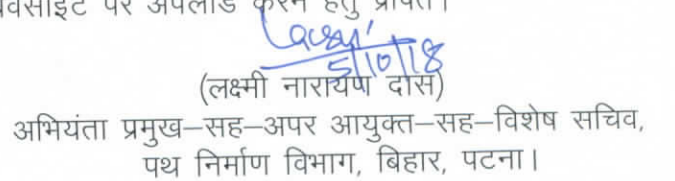 वेबसाइट पर अपलोड करने हेतु प्रेषित।
5/10/18
(लक्ष्मी नारायण दास)
अभियंता प्रमुख–सह–अपर आयुक्त–सह–विशेष सचिव,
पथ निर्माण विभाग, बिहार, पटना।